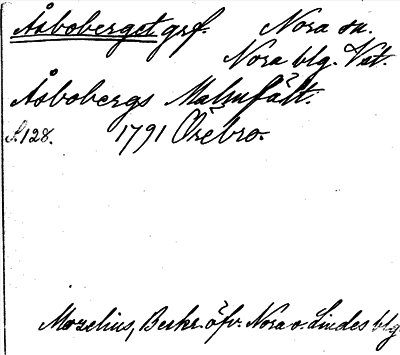 Åsboberget grf. Nora sn.
Nora blg. Vstm.
Åsbobergs Malmfält.
S. 128. 1791 Örebro.
Mozelius, Beskr. öfv. Nora o. Lindes blg.